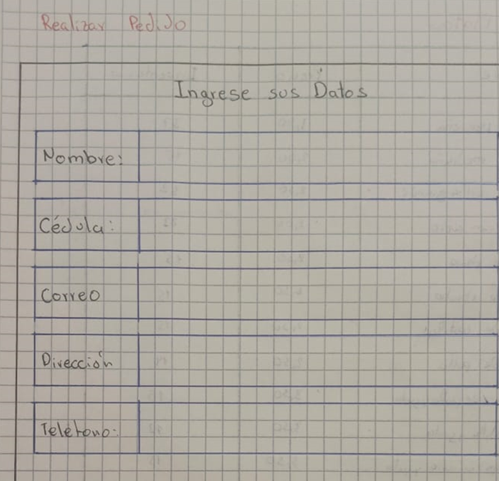 Realizar Pedido
Ingrese sus Datos
Nombre:
Cédula:
Correo
Dirección
Teléfono: